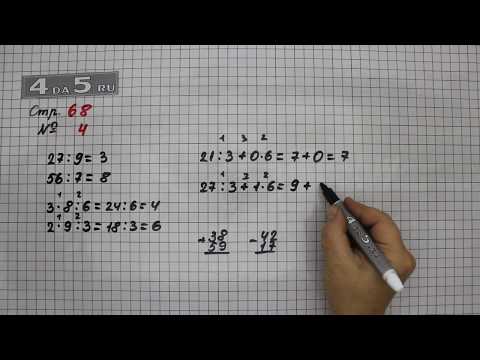 4 DA 5 RU
Стр. 68
№ 4
27 : 9 = 3
56 : 7 = 8
1 2
3 · 8 : 6 = 24 : 6 = 4
1 2
2 · 9 : 3 = 18 : 3 = 6
1 3 2
21 : 3 + 0 · 6 = 7 + 0 = 7
1 3 2
27 : 3 + 1 · 6 = 9 +
+ 38
59
- 42
17
4 DA 5